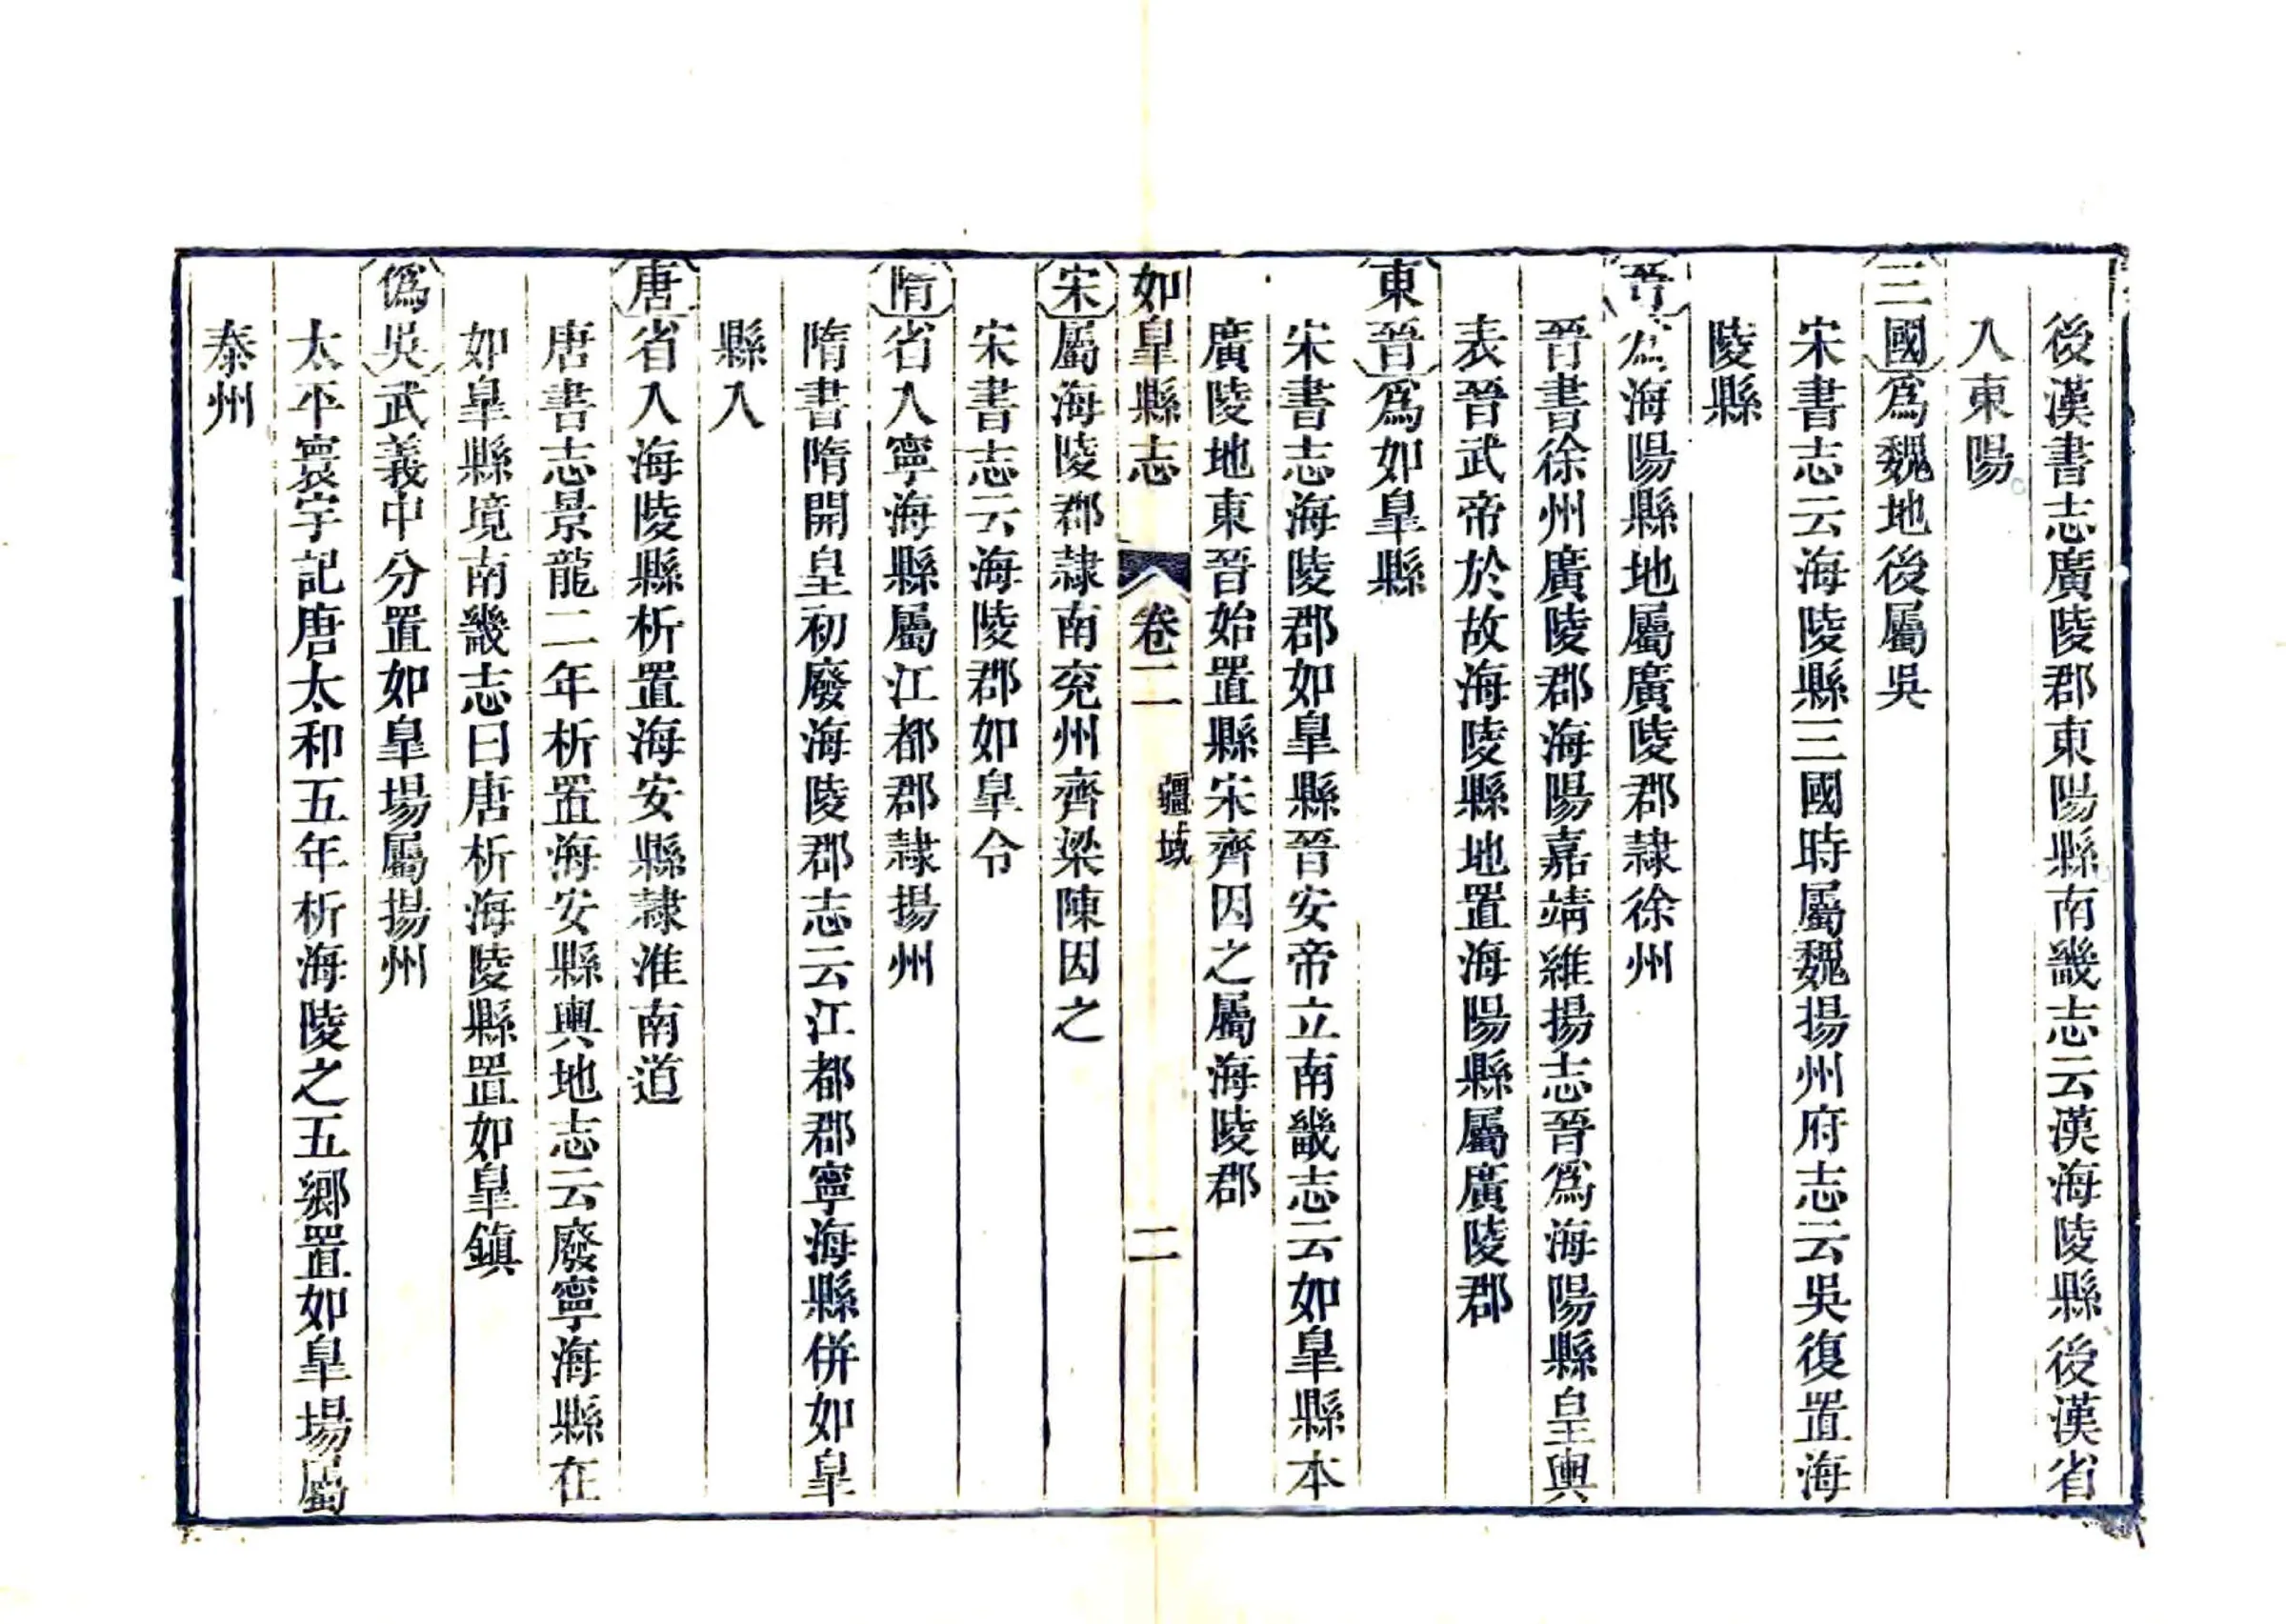 後漢書志廣陵郡東陽縣南畿志云漢海陵縣後漢省
入東陽
三國爲魏地後屬吳
宋書志云海陵縣三國時屬魏揚州府志云吳復置海
陵縣
晉爲海陽縣地屬廣陵郡隸徐州
晉書徐州廣陵郡海陽嘉靖維揚志晉爲海陽縣皇輿
表晉武帝於故海陵縣地置海陽縣屬廣陵郡
東晉爲如臯縣
宋書志海陵郡如臯縣晉安帝立南畿志云如臯縣本
廣陵地東晉始置縣宋齊因之屬海陵郡
如臯縣志 卷二 疆域 二
宋屬海陵郡隸南兗州齊梁陳因之
宋書志云海陵郡如臯令
隋省入寧海縣屬江都郡隸揚州
隋書隋開皇初廢海陵郡志云江都郡寧海縣併如臯
縣入
唐省入海陵縣析置海安縣隸淮南道
唐書志景龍二年析置海安縣輿地志云廢寧海縣在
如臯縣境南畿志曰唐析海陵縣置如臯鎭
僞吳武義中分置如臯場屬揚州
太平寰宇記唐太和五年析海陵之五鄉置如臯場屬
泰州